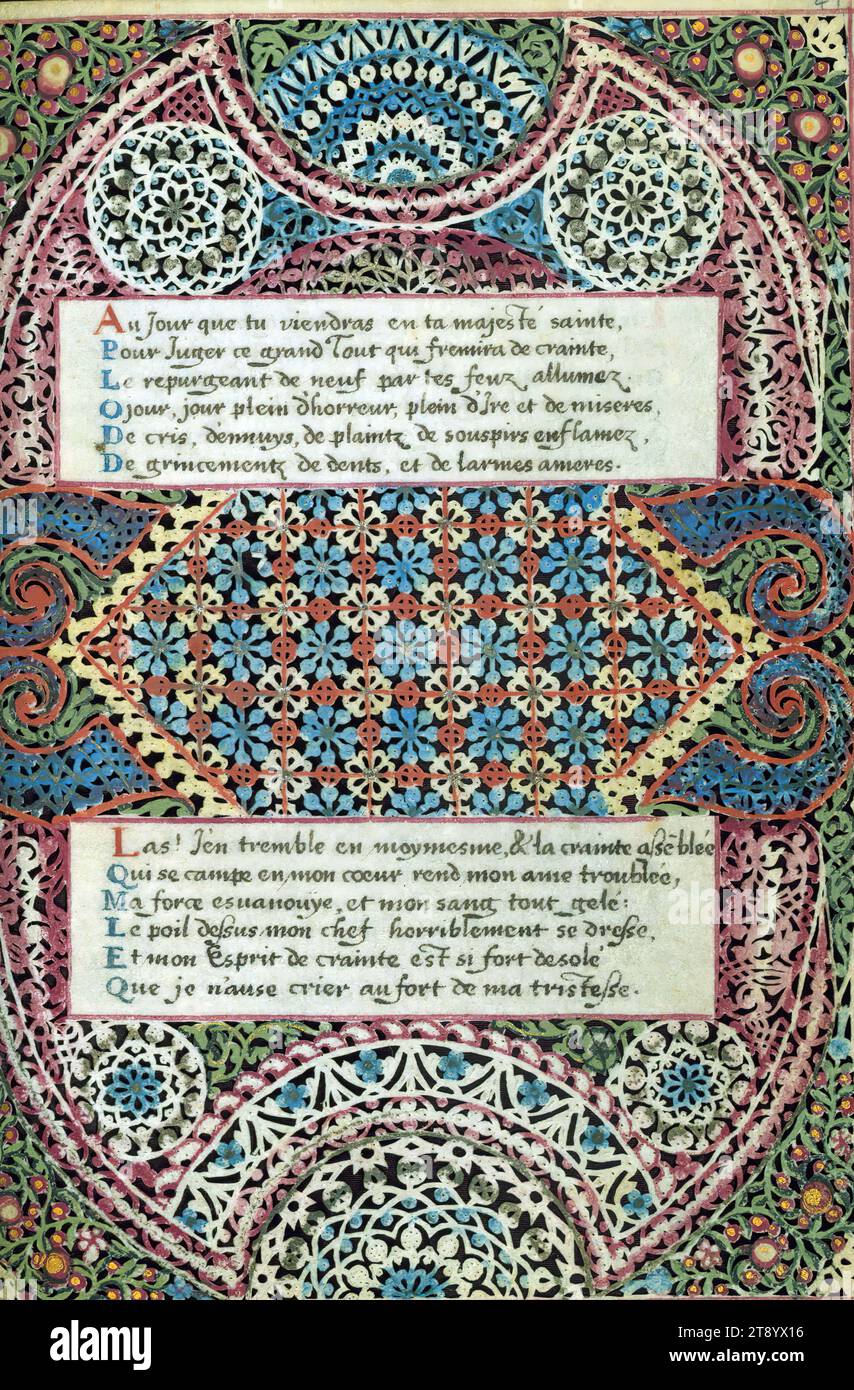 41
Au Jour que tu viendras en ta majesté sainte,
Pour Juger ce grand Tout qui fremira de crainte,
Le repurgeant de neuf par tes feuz allumez.
O jour, jour plein d'horreur, plein d'Ire et de miseres,
De cris, d'ennuys, de plaintz, de souspirs enflamez,
De grincementz de dents, et de larmes ameres.
Las! J'en tremble en moymesme, & la crainte assẽblée
Qui se campe en mon coeur rend mon ame troublée,
Ma force esvanouye, et mon sang tout gelé:
Le poil dessus mon chef horriblement se dresse,
Et mon Esprit de crainte est si fort desolé
Que je n'ause crier au fort de ma tristesse.
alamy
alamy
Image ID: 2T8YX16
www.alamy.com